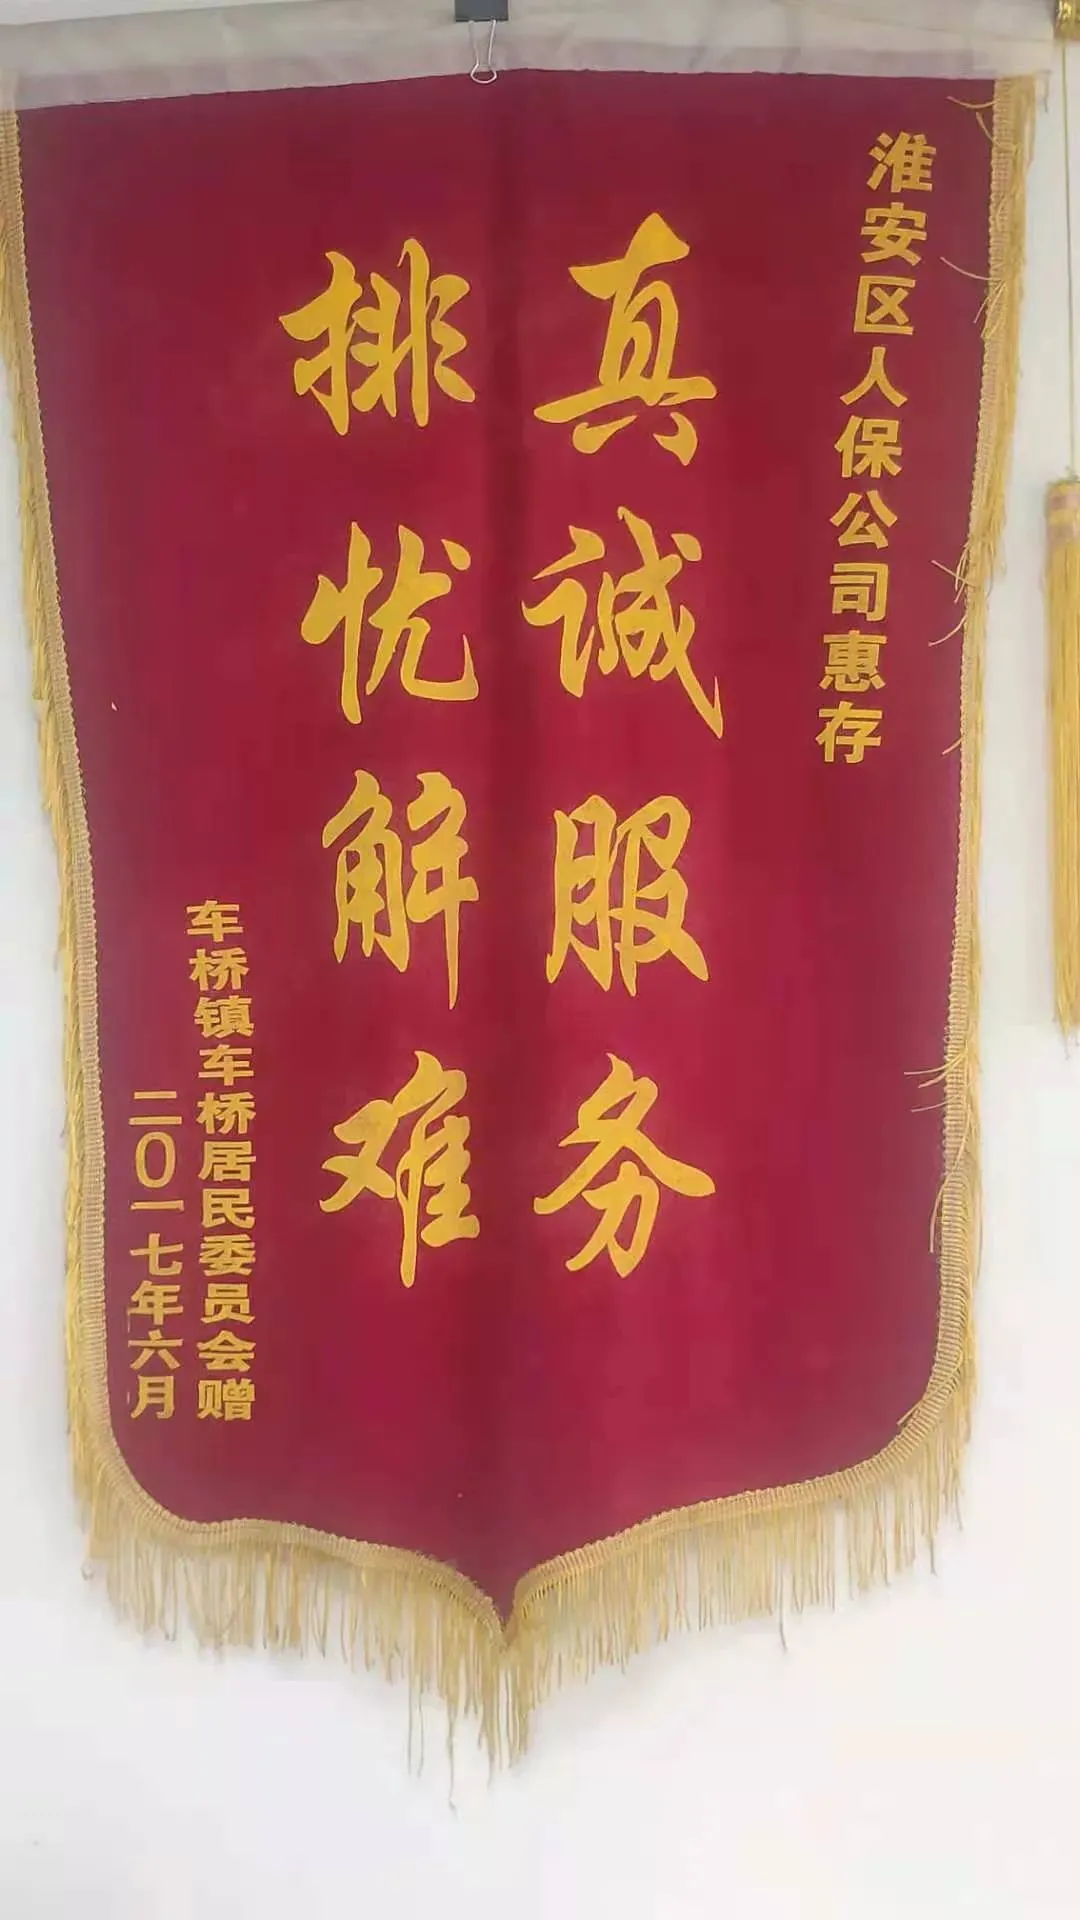 淮安区人保公司惠存
真诚服务
排忧解难
车桥镇车桥居民委员会赠
二〇一七年六月